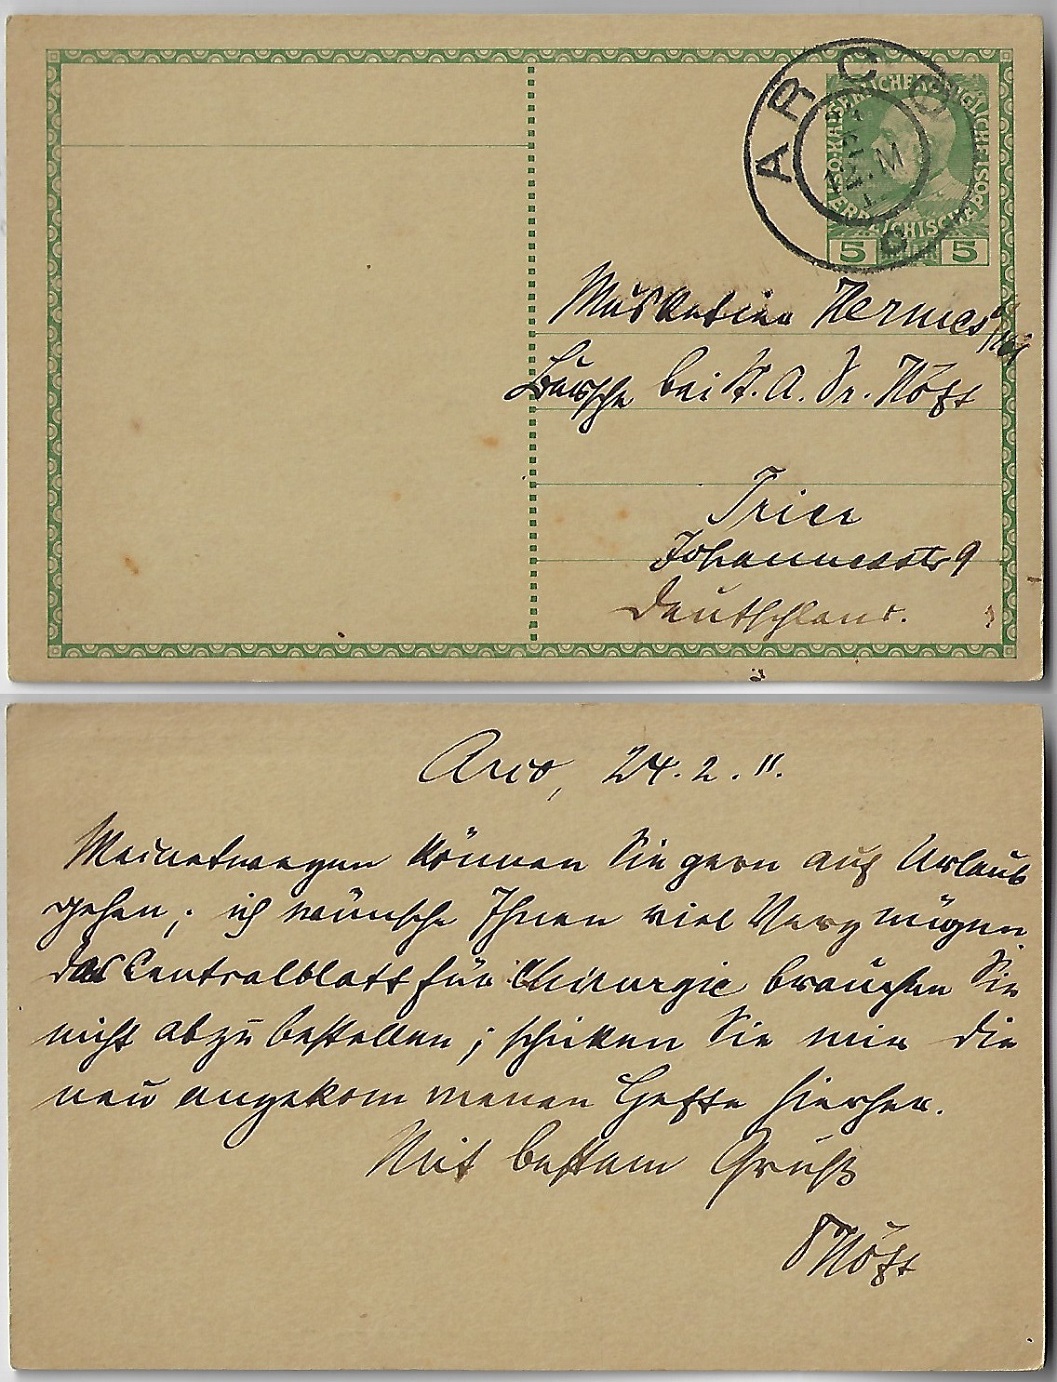 ARCO
KAISERLICHE KÖNIGLICHE
ÖSTERREICHISCHE POST
5 5
Musketier Hermes
Bursche bei St. A. Dr. Nöst
Trier
Johannesstr 9
Deutschland.
Arco, 24. 2. 11.
Meinetwegen können Sie gern auf Urlaub
gehen; ich wünsche Ihnen viel Vergnügen.
Das Centralblatt für Chirurgie brauchen Sie
nicht abzubestellen; schicken Sie mir die
neu angekommenen Hefte hierher.
Mit bestem Gruß